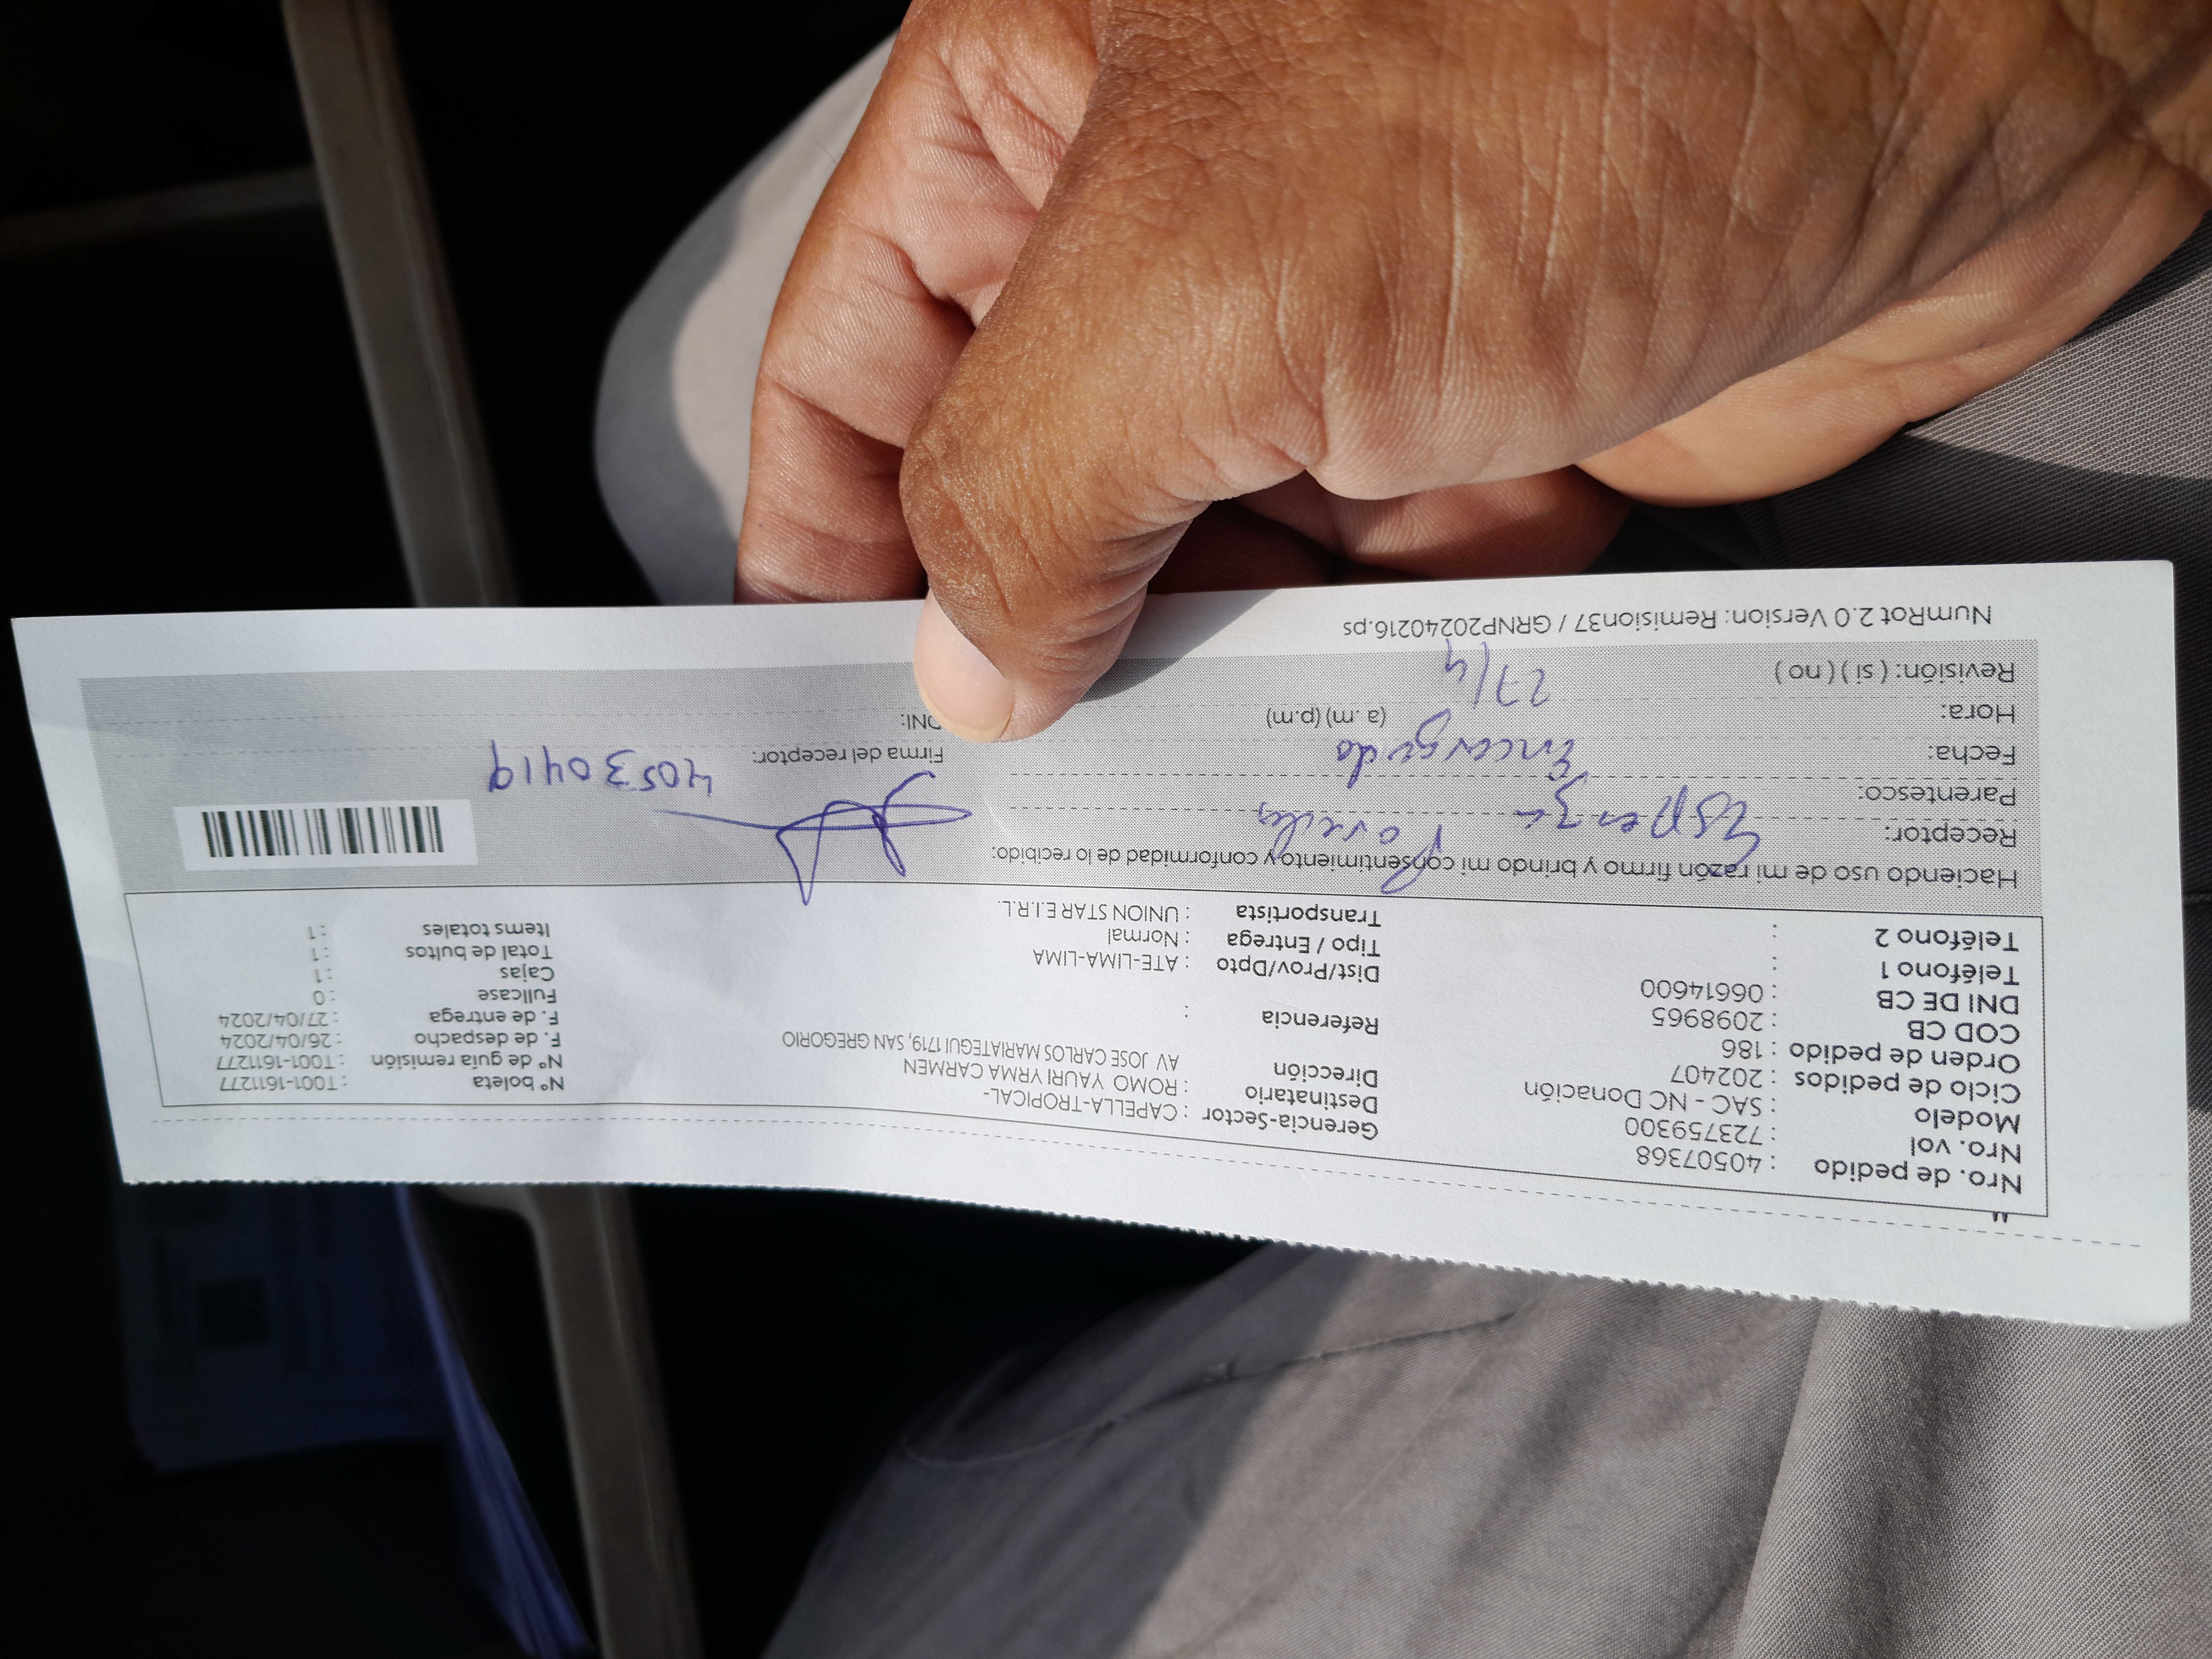 Nro. de pedido : 40507368
Nro. vol : 723759300
Modelo : SAC - NC Donación
Ciclo de pedidos : 202407
Orden de pedido : 186
COD CB : 2098965
DNI DE CB : 06614600
Teléfono 1 :
Teléfono 2 :
Gerencia-Sector : CAPELLA-TROPICAL-
Destinatario : ROMO YAURI YRMA CARMEN
Dirección AV JOSE CARLOS MARIATEGUI 1719, SAN GREGORIO
Referencia :
Dist/Prov/Dpto : ATE-LIMA-LIMA
Tipo / Entrega : Normal
Transportista : UNION STAR E.I.R.L.
N° boleta : T001-1611277
N° de guía remisión : T001-1611277
F. de despacho : 26/04/2024
F. de entrega : 27/04/2024
Fullcase : 0
Cajas : 1
Total de bultos : 1
Items totales : 1
Haciendo uso de mi razón firmo y brindo mi consentimiento y conformidad de lo recibido:
Receptor: Esperanza Paredes
Parentesco: Encargado
Fecha: 27/4
Hora: (a. m) (p.m)
Revisión: ( si ) ( no )
Firma del receptor: 40530419
DNI:
NumRot 2.0 Version: Remision37 / GRNP20240216.ps